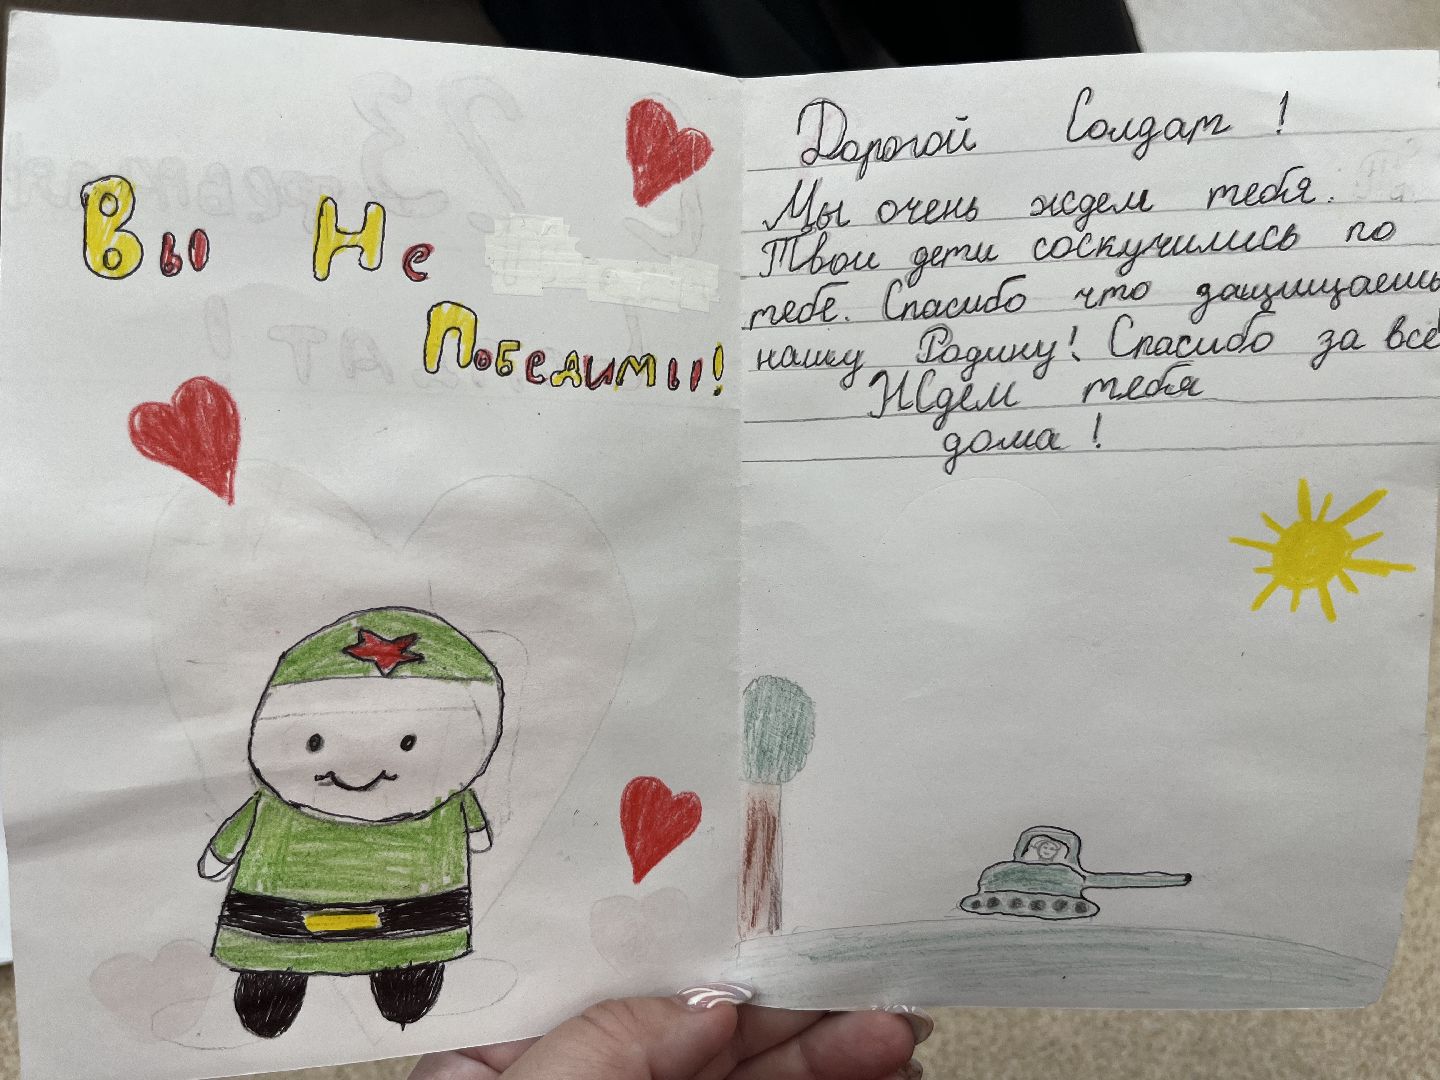 Вы Не
Победимы!
Дорогой Солдат!
Мы очень ждем тебя.
Твои дети соскучились по
тебе. Спасибо что защищаешь
нашу Родину! Спасибо за всё!
Ждем тебя
дома!